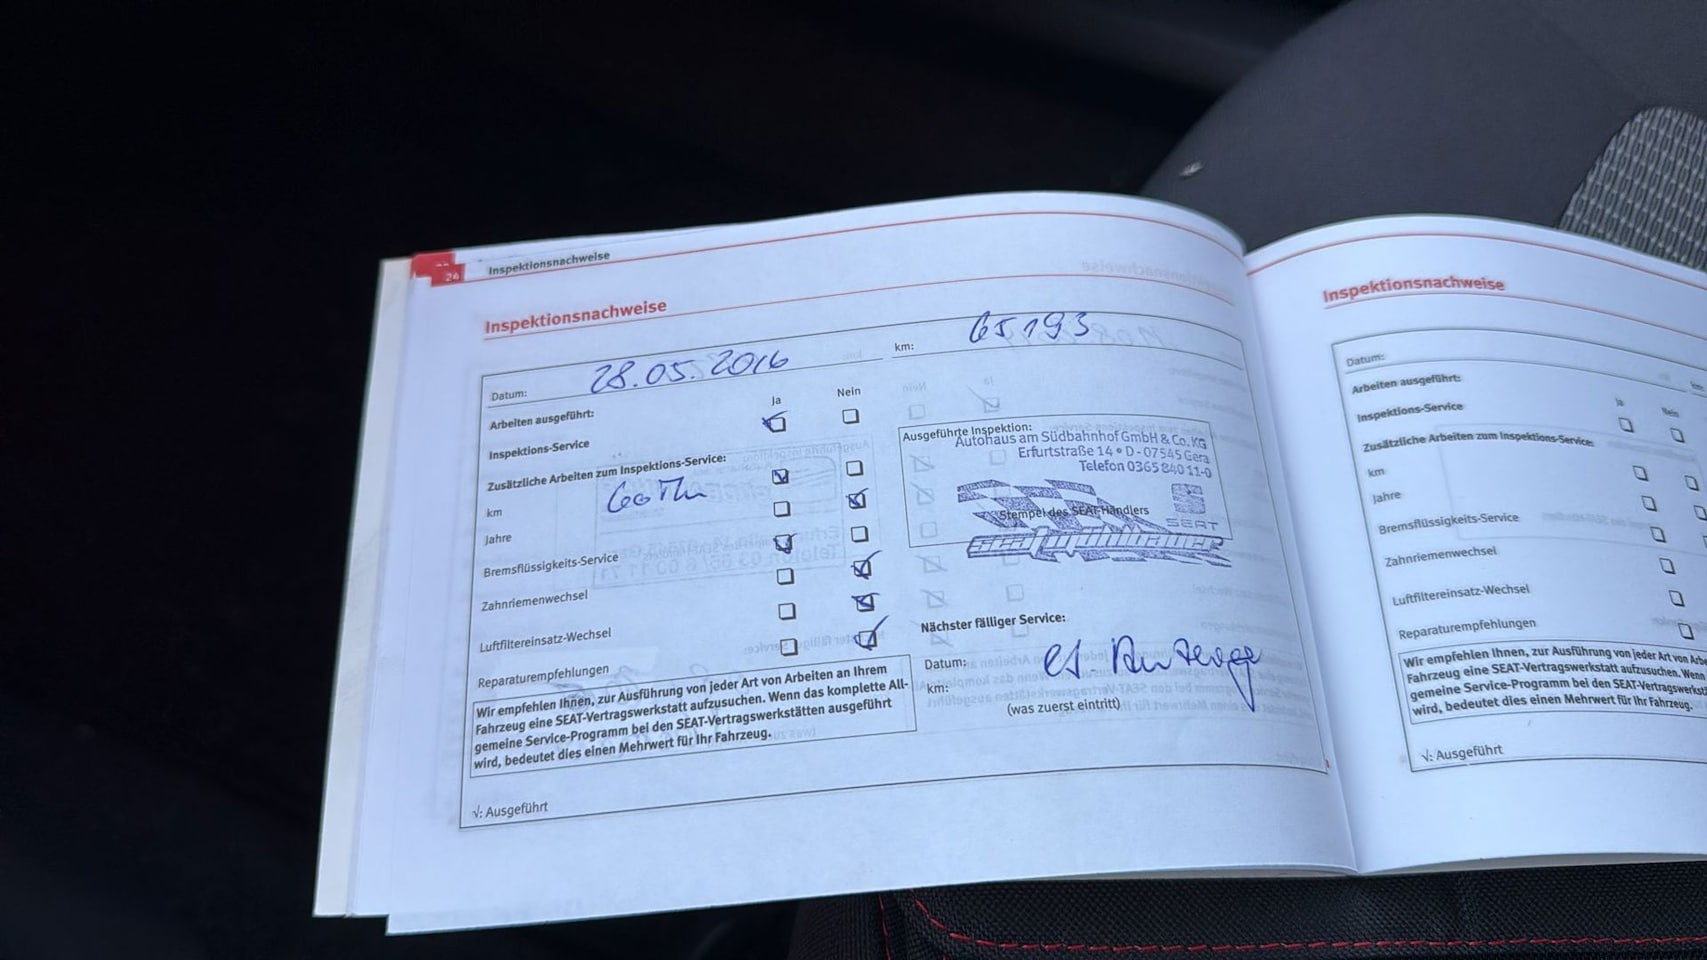 24
Inspektionsnachweise
Inspektionsnachweise
Datum: 28.05.2016 km: 65193
Arbeiten ausgeführt: Ja Nein
Inspektions-Service
Zusätzliche Arbeiten zum Inspektions-Service:
km
Jahre
Bremsflüssigkeits-Service
Zahnriemenwechsel
Luftfiltereinsatz-Wechsel
Reparaturempfehlungen
Wir empfehlen Ihnen, zur Ausführung von jeder Art von Arbeiten an Ihrem
Fahrzeug eine SEAT-Vertragswerkstatt aufzusuchen. Wenn das komplette All-
gemeine Service-Programm bei den SEAT-Vertragswerkstätten ausgeführt
wird, bedeutet dies einen Mehrwert für Ihr Fahrzeug.
√: Ausgeführt
Ausgeführte Inspektion:
Autohaus am Südbahnhof GmbH & Co. KG
Erfurtstraße 14 • D - 07545 Gera
Telefon 0365 840 11-0
Stempel des SEAT-Händlers
SEAT
Nächster fälliger Service:
Datum:
km:
(was zuerst eintritt)
Inspektionsnachweise
Datum:
Arbeiten ausgeführt:
Inspektions-Service Ja Nein
Zusätzliche Arbeiten zum Inspektions-Service:
km
Jahre
Bremsflüssigkeits-Service
Zahnriemenwechsel
Luftfiltereinsatz-Wechsel
Reparaturempfehlungen
Wir empfehlen Ihnen, zur Ausführung von jeder Art von
Fahrzeug eine SEAT-Vertragswerkstatt aufzusuchen. Wenn
gemeine Service-Programm bei den
wird, bedeutet dies einen Mehrwert für Ihr Fahrzeug.
√: Ausgeführt